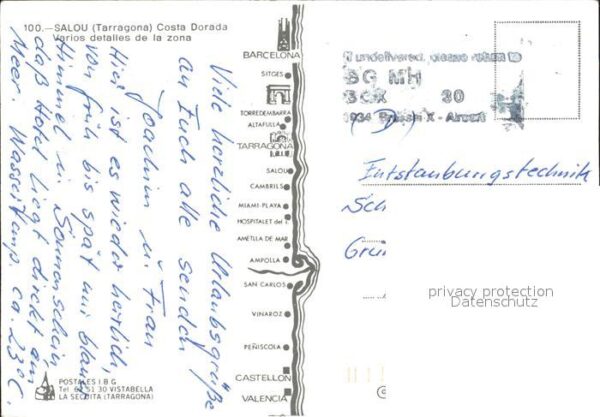 100.—SALOU (Tarragona) Costa Dorada
Varios detalles de la zona
Viele herzliche Urlaubsgrüße
an Euch alle senden
Joachim u. Frau
Hier ist es wieder herrlich,
von früh bis spät nur blauer
Himmel u. Sonnenschein,
das Hotel liegt direkt am
Meer Wassertemp. ca. 23°C.
BARCELONA
SITGES
TORREDEMBARRA
ALTAFULLA
TARRAGONA
SALOU
CAMBRILS
MIAMI-PLAYA
HOSPITALET del I.
AMETLLA DE MAR
AMPOLLA
SAN CARLOS
VINAROZ
PEÑISCOLA
CASTELLON
VALENCIA
POSTALES I B G
Tel. 51 30 VISTABELLA
LA SECUITA (TARRAGONA)
If undelivered, please return to
BG MH
BOX 30
1934 Brussel X - Aircraft
(D)
Entstaubungstechnik
Sch
privacy protection
Datenschutz